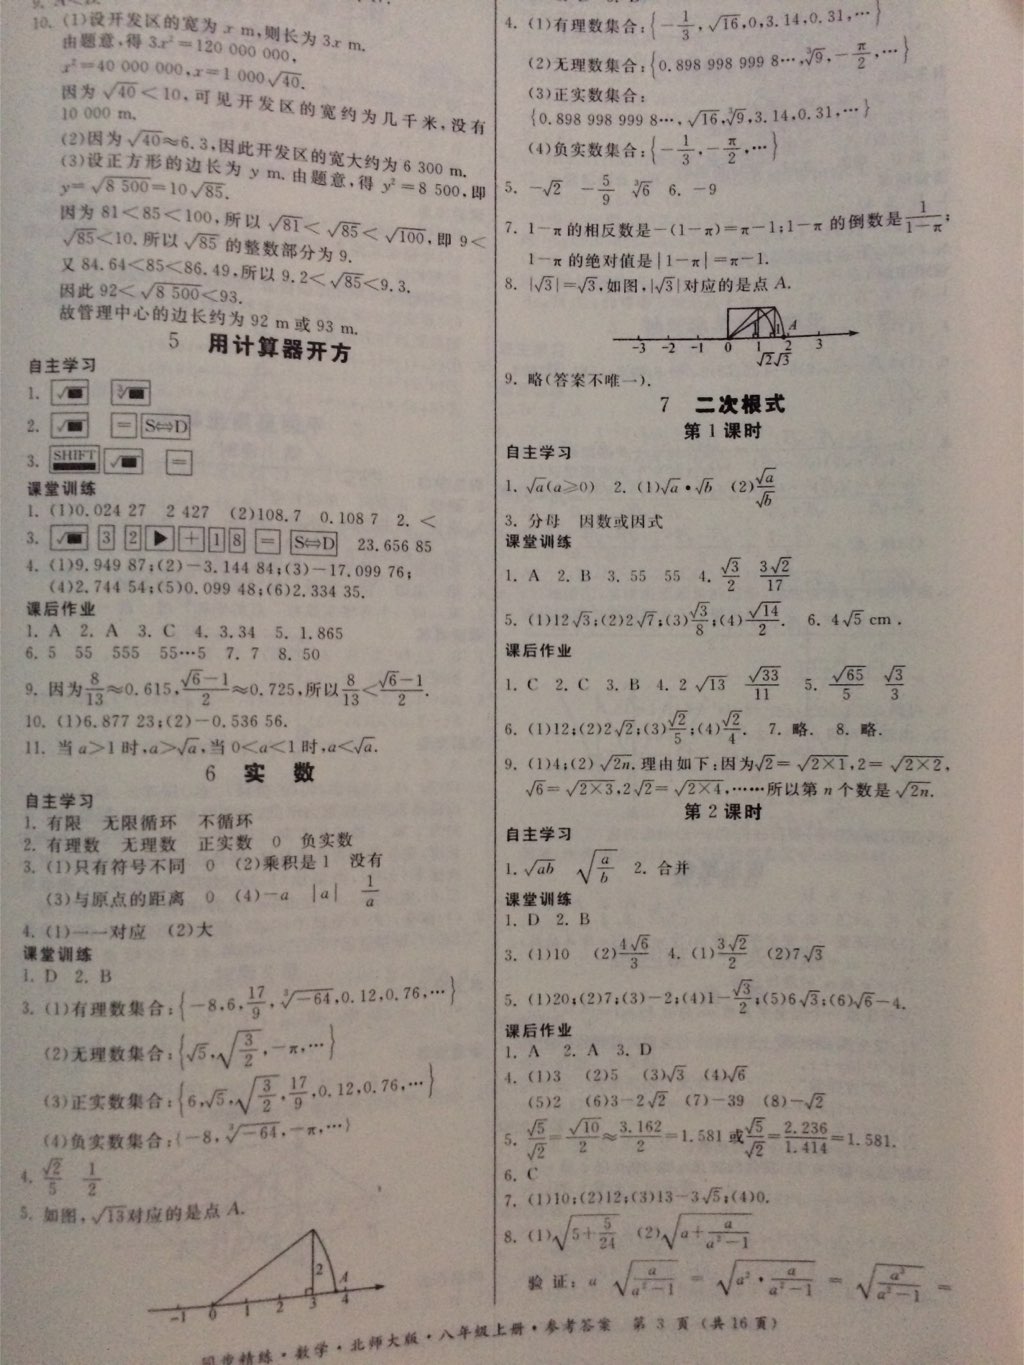 10. (1)设开发区的宽为 x m,则长为 3x m.
由题意,得 3x²=120 000 000,
x²=40 000 000,x=1 000√40.
因为 √40<10,可见开发区的宽约为几千米,没有
10 000 m.
(2)因为√40≈6.3,因此开发区的宽大约为 6 300 m.
(3)设正方形的边长为 y m.由题意,得 y²=8 500,即
y=√8 500=10√85.
因为 81<85<100,所以 √81<√85<√100,即 9<
√85<10.所以√85 的整数部分为 9.
又 84.64<85<86.49,所以 9.2<√85<9.3.
因此 92<√8 500<93.
故管理中心的边长约为 92 m 或 93 m.
5 用计算器开方
自主学习
1. √■ ³√■
2. √■ = S⇔D
3. SHIFT √■ =
课堂训练
1. (1)0.024 27 2 427 (2)108.7 0.108 7 2. <
3. √■ 3 2 ▶ + 1 8 = S⇔D 23.656 85
4. (1)9.949 87;(2)-3.144 84;(3)-17.099 76;
(4)2.744 54;(5)0.099 48;(6)2.334 35.
课后作业
1. A 2. A 3. C 4. 3.34 5. 1.865
6. 5 55 555 55…5 7. 7 8. 50
9. 因为 8/13≈0.615,(√6-1)/2≈0.725,所以 8/13<(√6-1)/2.
10. (1)6.877 23;(2)-0.536 56.
11. 当 a>1 时,a>√a,当 0<a<1 时,a<√a.
6 实 数
自主学习
1. 有限 无限循环 不循环
2. 有理数 无理数 正实数 0 负实数
3. (1)只有符号不同 0 (2)乘积是 1 没有
(3)与原点的距离 0 (4)-a |a| 1/a
4. (1)一一对应 (2)大
课堂训练
1. D 2. B
3. (1)有理数集合:{-8,6,17/9,³√-64,0.12,0.76,…}
(2)无理数集合:{√5,√(3/2),-π,…}
(3)正实数集合:{6,√5,√(3/2),17/9,0.12,0.76,…}
(4)负实数集合:{-8,³√-64,-π,…}
4. √2/5 1/2
5. 如图,√13对应的是点 A.
2 A
-1 0 1 2 3 4
4. (1)有理数集合:{-1/3,√16,0,3.14,0.31,…}
(2)无理数集合:{0.898 998 999 8…,³√9,-π/2,…}
(3)正实数集合:
{0.898 998 999 8…,√16,³√9,3.14,0.31,…}
(4)负实数集合:{-1/3,-π/2,…}
5. -√2 -5/9 ³√6 6. -9
7. 1-π 的相反数是-(1-π)=π-1;1-π 的倒数是 1/(1-π);
1-π 的绝对值是|1-π|=π-1.
8. |√3|=√3,如图,|√3|对应的是点 A.
1 A
-3 -2 -1 0 1 2 3
√2 √3
9. 略(答案不唯一).
7 二次根式
第 1 课时
自主学习
1. √a(a≥0) 2. (1)√a•√b (2)√a/√b
3. 分母 因数或因式
课堂训练
1. A 2. B 3. 55 55 4. √3/2 3√2/17
5. (1)12√3;(2)2√7;(3)√3/8;(4)√14/2. 6. 4√5 cm.
课后作业
1. C 2. C 3. B 4. 2√13 √33/11 5. √65/5 √3/3
6. (1)12;(2)2√2;(3)√2/5;(4)√2/4. 7. 略. 8. 略.
9. (1)4;(2)√2n.理由如下:因为√2=√2×1,2=√2×2,
√6=√2×3,2√2=√2×4,……所以第 n 个数是 √2n.
第 2 课时
自主学习
1. √ab √(a/b) 2. 合并
课堂训练
1. D 2. B
3. (1)10 (2)4√6/3 4. (1)3√2/2 (2)7√3
5. (1)20;(2)7;(3)-2;(4)1-√3/2;(5)6√3;(6)√6-4.
课后作业
1. A 2. A 3. D
4. (1)3 (2)5 (3)√3 (4)√6
(5)2 (6)3-2√2 (7)-39 (8)-√2
5. √5/√2=√10/2≈3.162/2=1.581 或√5/√2=2.236/1.414=1.581.
6. C
7. (1)10;(2)12;(3)13-3√5;(4)0.
8. (1)√(5+5/24) (2)√(a+a/(a²-1))
验证:a√(a/(a²-1)) = √(a²•a/(a²-1)) = √(a³/(a²-1)) =
同步精练·数学·北师大版·八年级上册·参考答案 第 3 页(共 16 页)